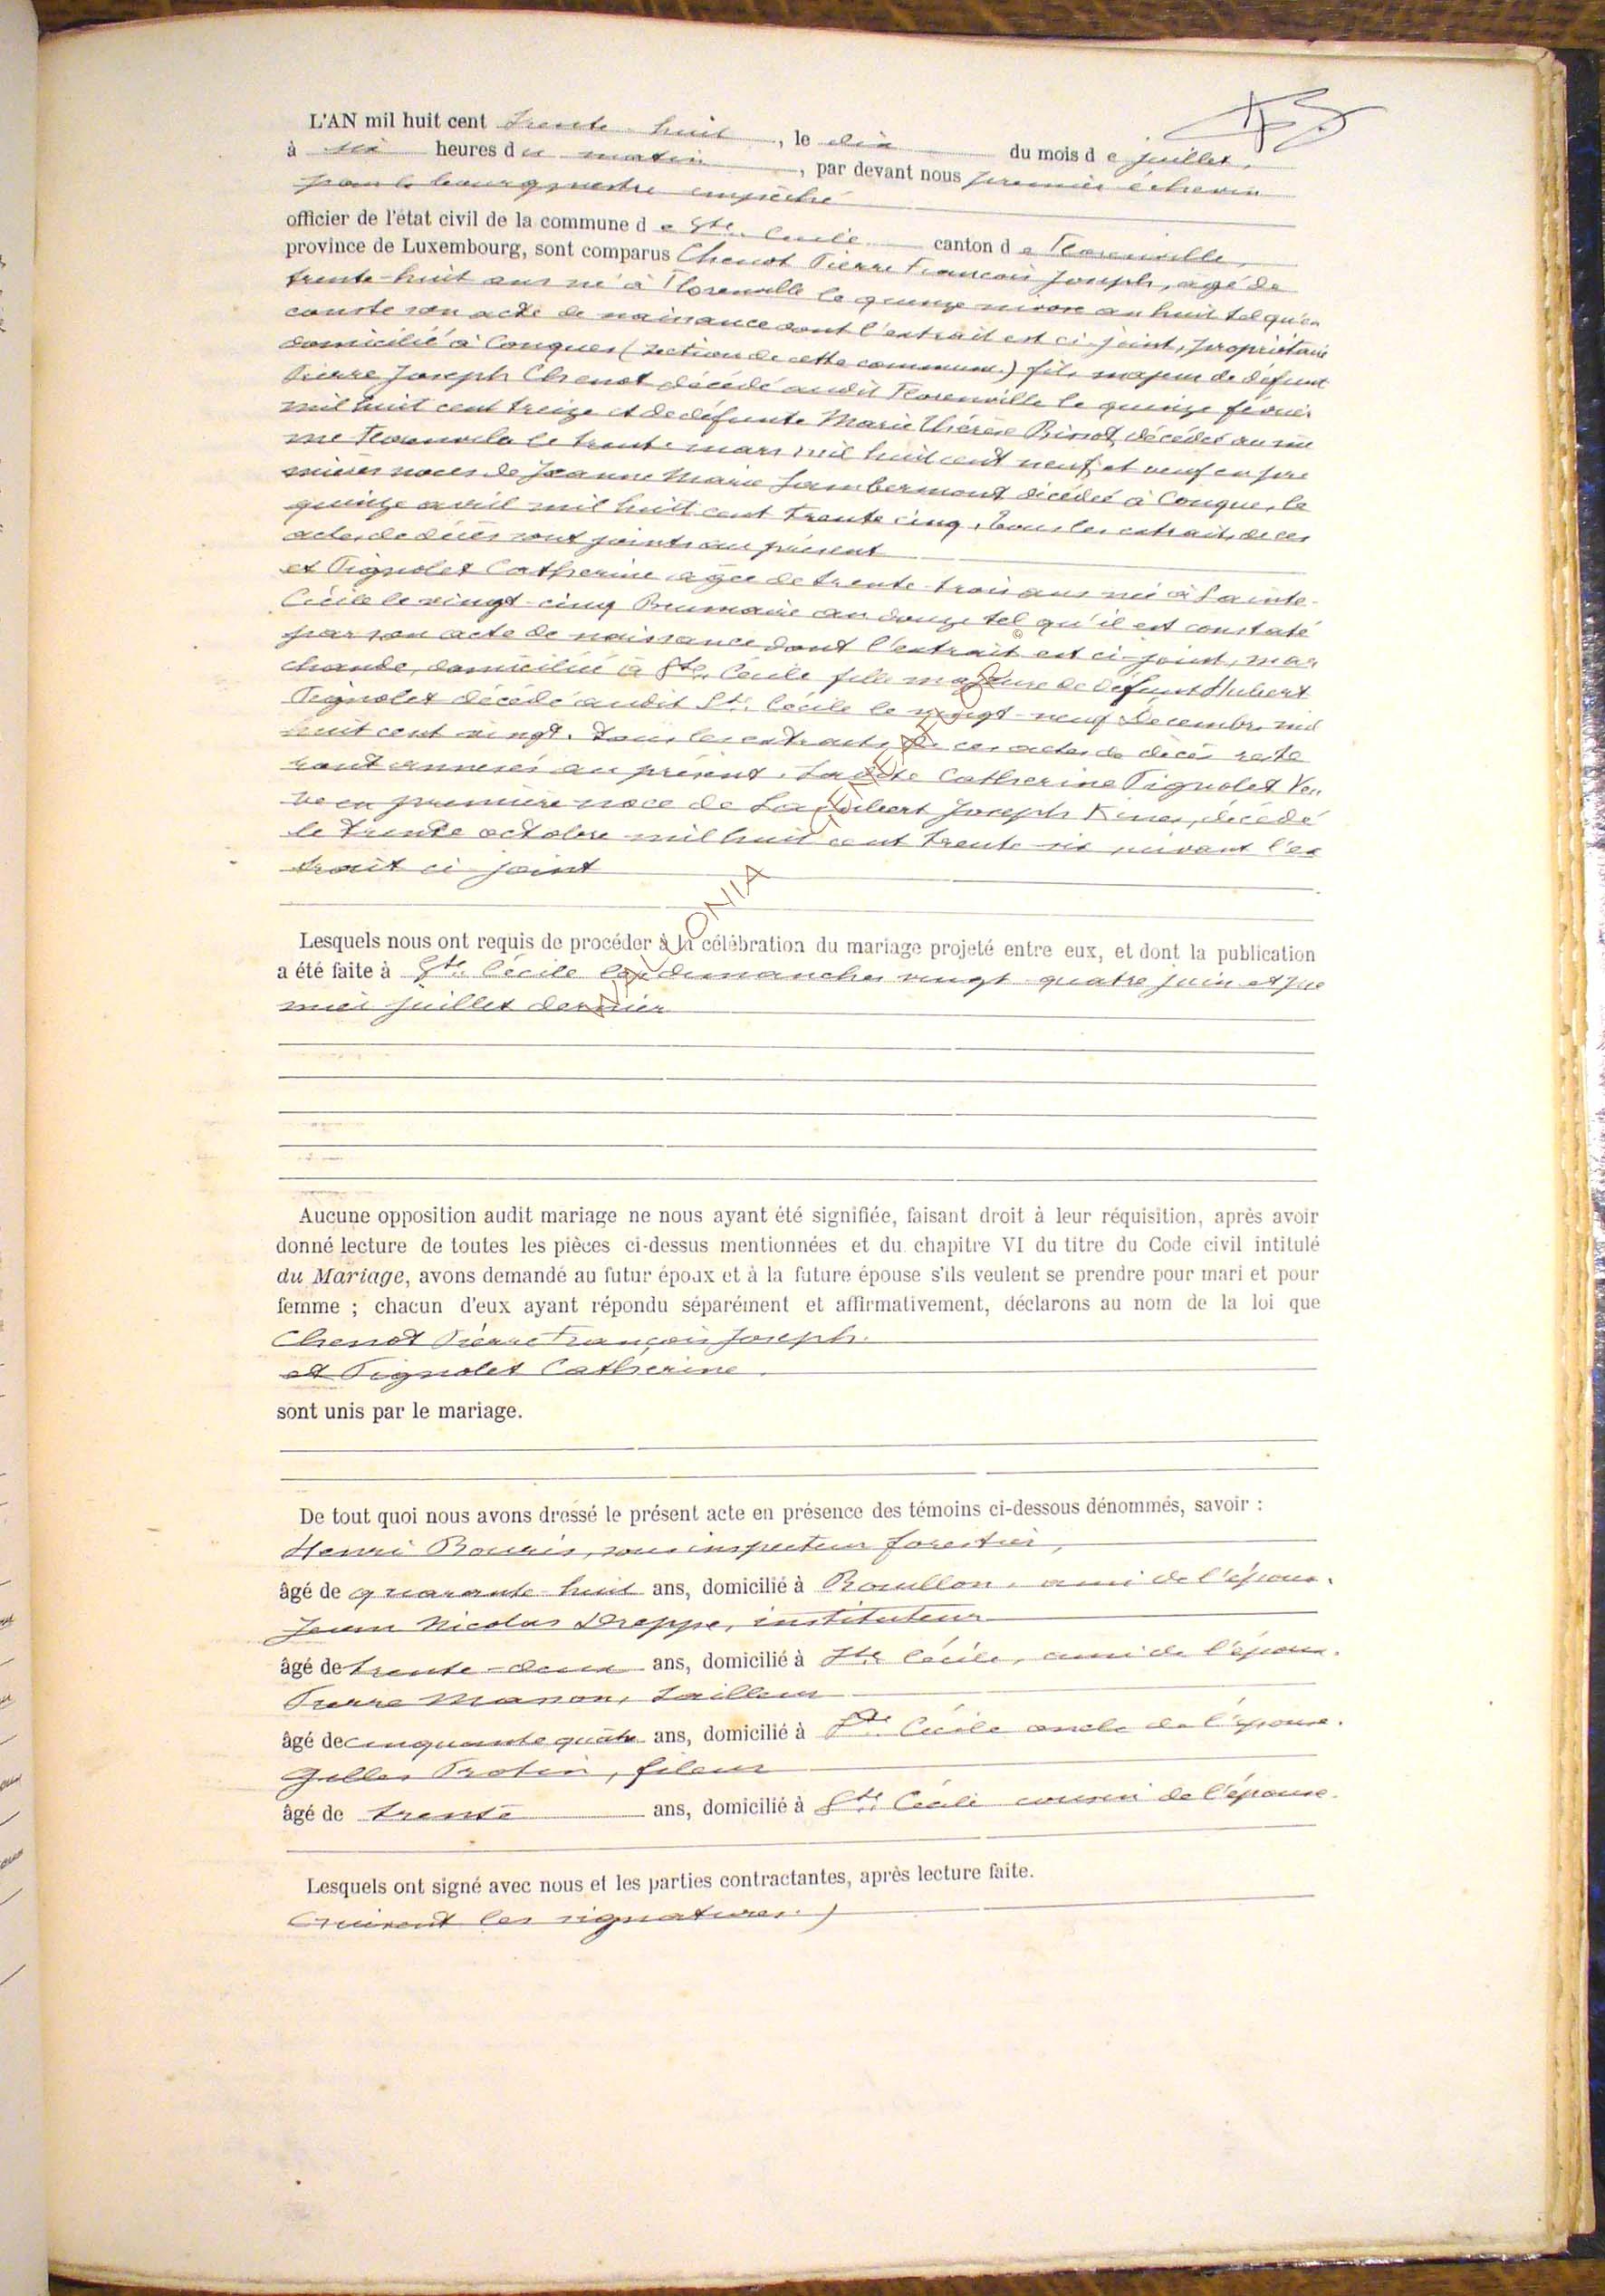 L'AN mil huit cent trente huit, le dix du mois de juillet,
à six heures du matin, par devant nous premier échevin
pour le bourgmestre empêché
officier de l'état civil de la commune de Ste. Cécile canton de Florenville,
province de Luxembourg, sont comparus Chenot Pierre François Joseph, âgé de
trente-huit ans né à Florenville le quinze nivose an huit tel qu'en
conste son acte de naissance dont l'extrait est ci-joint, propriétaire
domicilié à Conques (section de cette commune.) fils majeur de défunt
Pierre Joseph Chenot décédé audit Florenville le quinze février
mil huit cent treize et de défunte Marie Thérèse Pinot, décédée au mê
me Florenville le trente mars mil huit cent neuf, et veuf en pre
mières noces de Jeanne Marie Lambermont décédée à Conques, le
quinze avril mil huit cent trente cinq, tous les extraits de ces
actes de décès sont joints au présent
et Pignolet Catherine âgée de trente-trois ans née à Sainte-
Cécile le vingt-cinq Brumaire an douze tel qu'il est constaté
par son acte de naissance dont l'extrait est ci-joint, mar
chande, domiciliée à Ste. Cécile fille majeure de défunt Hubert
Pignolet décédé audit Ste. Cécile le vingt-neuf Décembre mil
huit cent vingt. tous les extraits de ces actes de décès reste
ront annexés au présent. Ladite Catherine Pignolet Veu
ve en première noce de Lambert Joseph décédé
le trente octobre mil huit cent trente-six suivant l'ex
trait ci-joint
Lesquels nous ont requis de procéder à la célébration du mariage projeté entre eux, et dont la publication
a été faite à Ste. Cécile les dimanches vingt-quatre juin et pre
mier juillet dernier
© GENEANET.ORG
WALLONIA
Aucune opposition audit mariage ne nous ayant été signifiée, faisant droit à leur réquisition, après avoir
donné lecture de toutes les pièces ci-dessus mentionnées et du chapitre VI du titre du Code civil intitulé
du Mariage, avons demandé au futur époux et à la future épouse s'ils veulent se prendre pour mari et pour
femme ; chacun d'eux ayant répondu séparément et affirmativement, déclarons au nom de la loi que
Chenot Pierre François Joseph.
et Pignolet Catherine.
sont unis par le mariage.
De tout quoi nous avons dressé le présent acte en présence des témoins ci-dessous dénommés, savoir :
Henri Bouris, sous inspecteur forestier,
âgé de quarante-huit ans, domicilié à Bouillon, ami de l'époux.
Jean Nicolas Dreppe, instituteur
âgé de trente-deux ans, domicilié à Ste Cécile, ami de l'époux.
Pierre Manon, tailleur
âgé de cinquante quatre ans, domicilié à Ste. Cécile oncle de l'épouse.
Gilles Protin, fileur
âgé de trente ans, domicilié à Ste. Cécile cousin de l'épouse.
Lesquels ont signé avec nous et les parties contractantes, après lecture faite.
(suivent les signatures.)